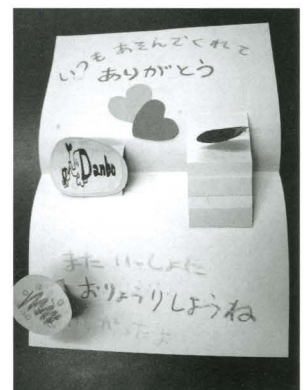 いつも あそんでくれて
ありがとう
Danbo
また いっしょに
おりょうりしようね